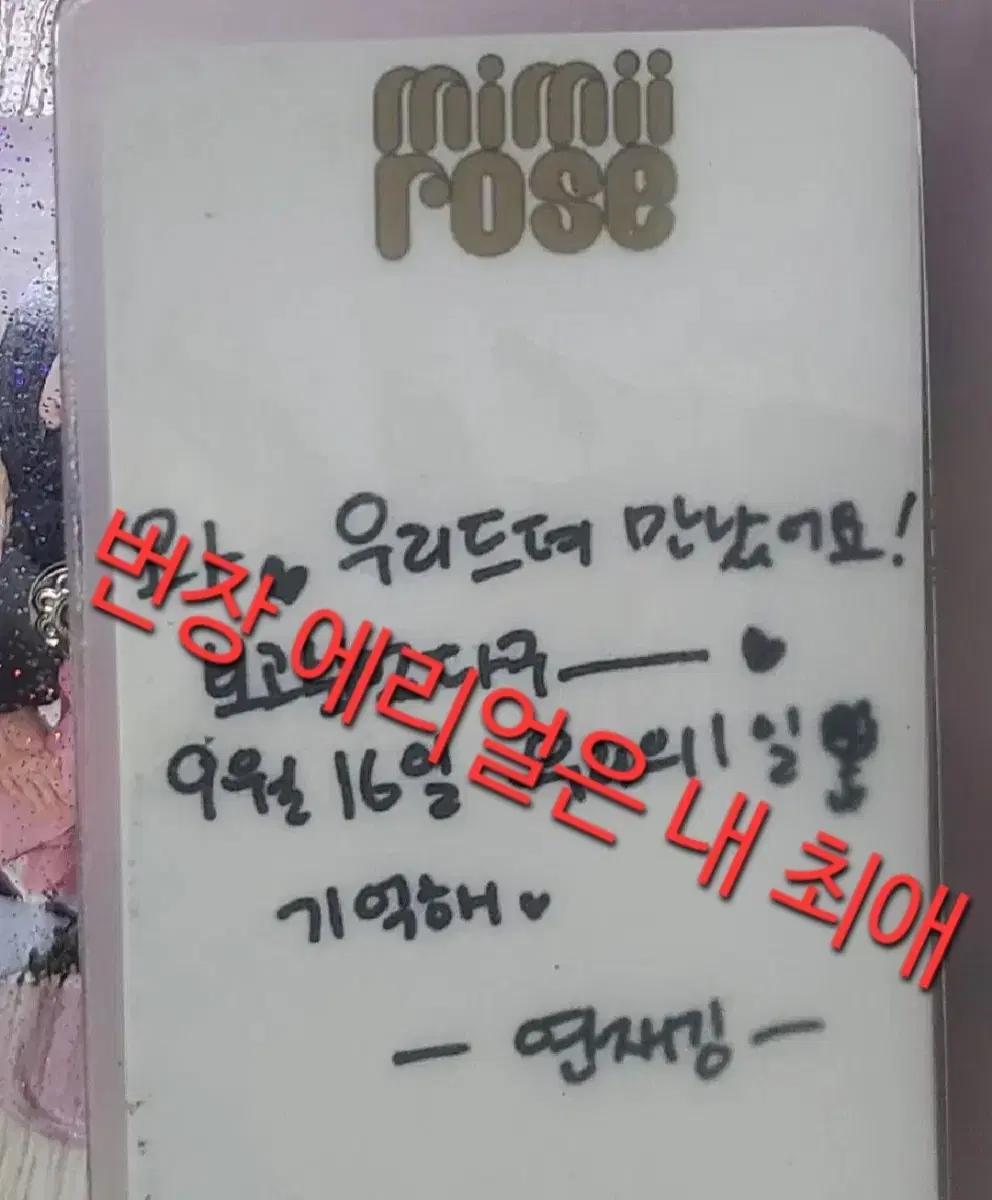 mimii
rose
우리드뎌 만났어요!
9월 16일 1일
기억해
- 연재킹 -
번장 에리얼은 내 최애